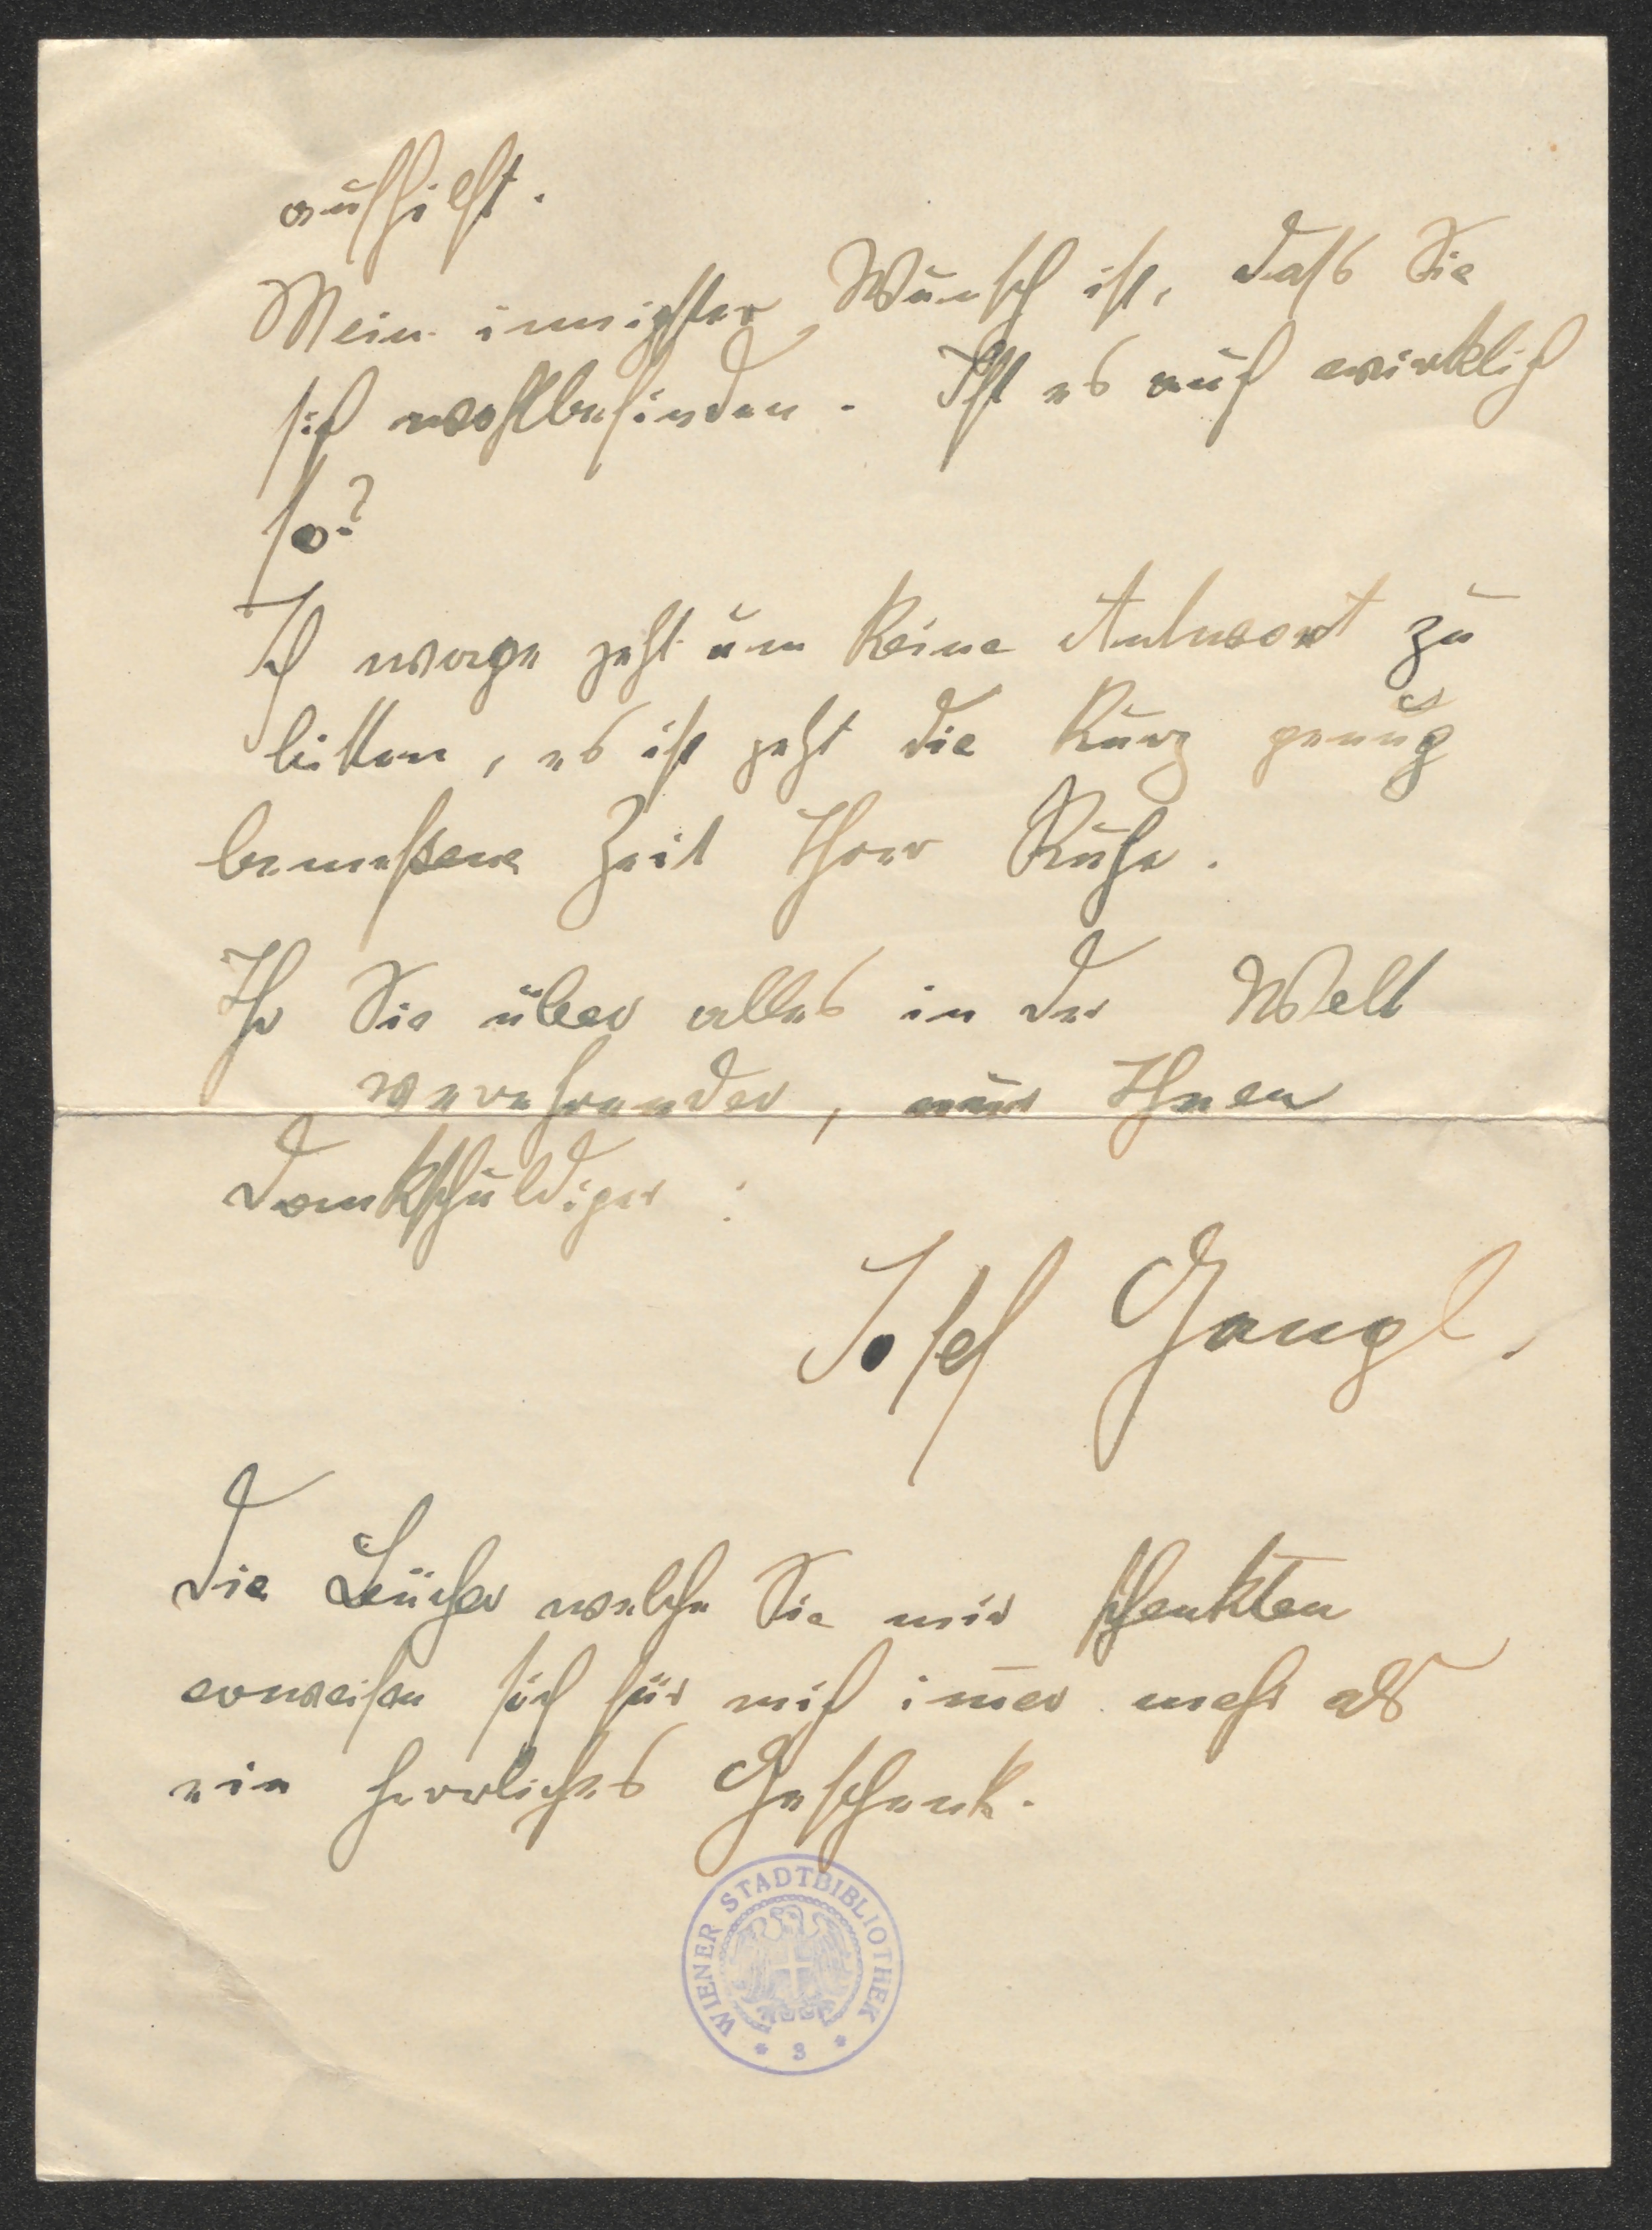 aufhilft.
Mein innigster Wunsch ist, dass Sie
sich wohlbefinden. Ist es auch wirklich
so?
Ich wage jetzt um keine Antwort zu
bitten, es ist jetzt die kurz genug
bemeßene Zeit Ihrer Ruhe.
Ihr Sie über alles in der Welt
verehrender, nur Ihnen
dankschuldiger:
Josef Gangl.
Die Bücher welche Sie mir schenkten
erweisen sich für mich im̅er mehr als
ein herrliches Geschenk.
WIENER STADTBIBLIOTHEK
* 3 *